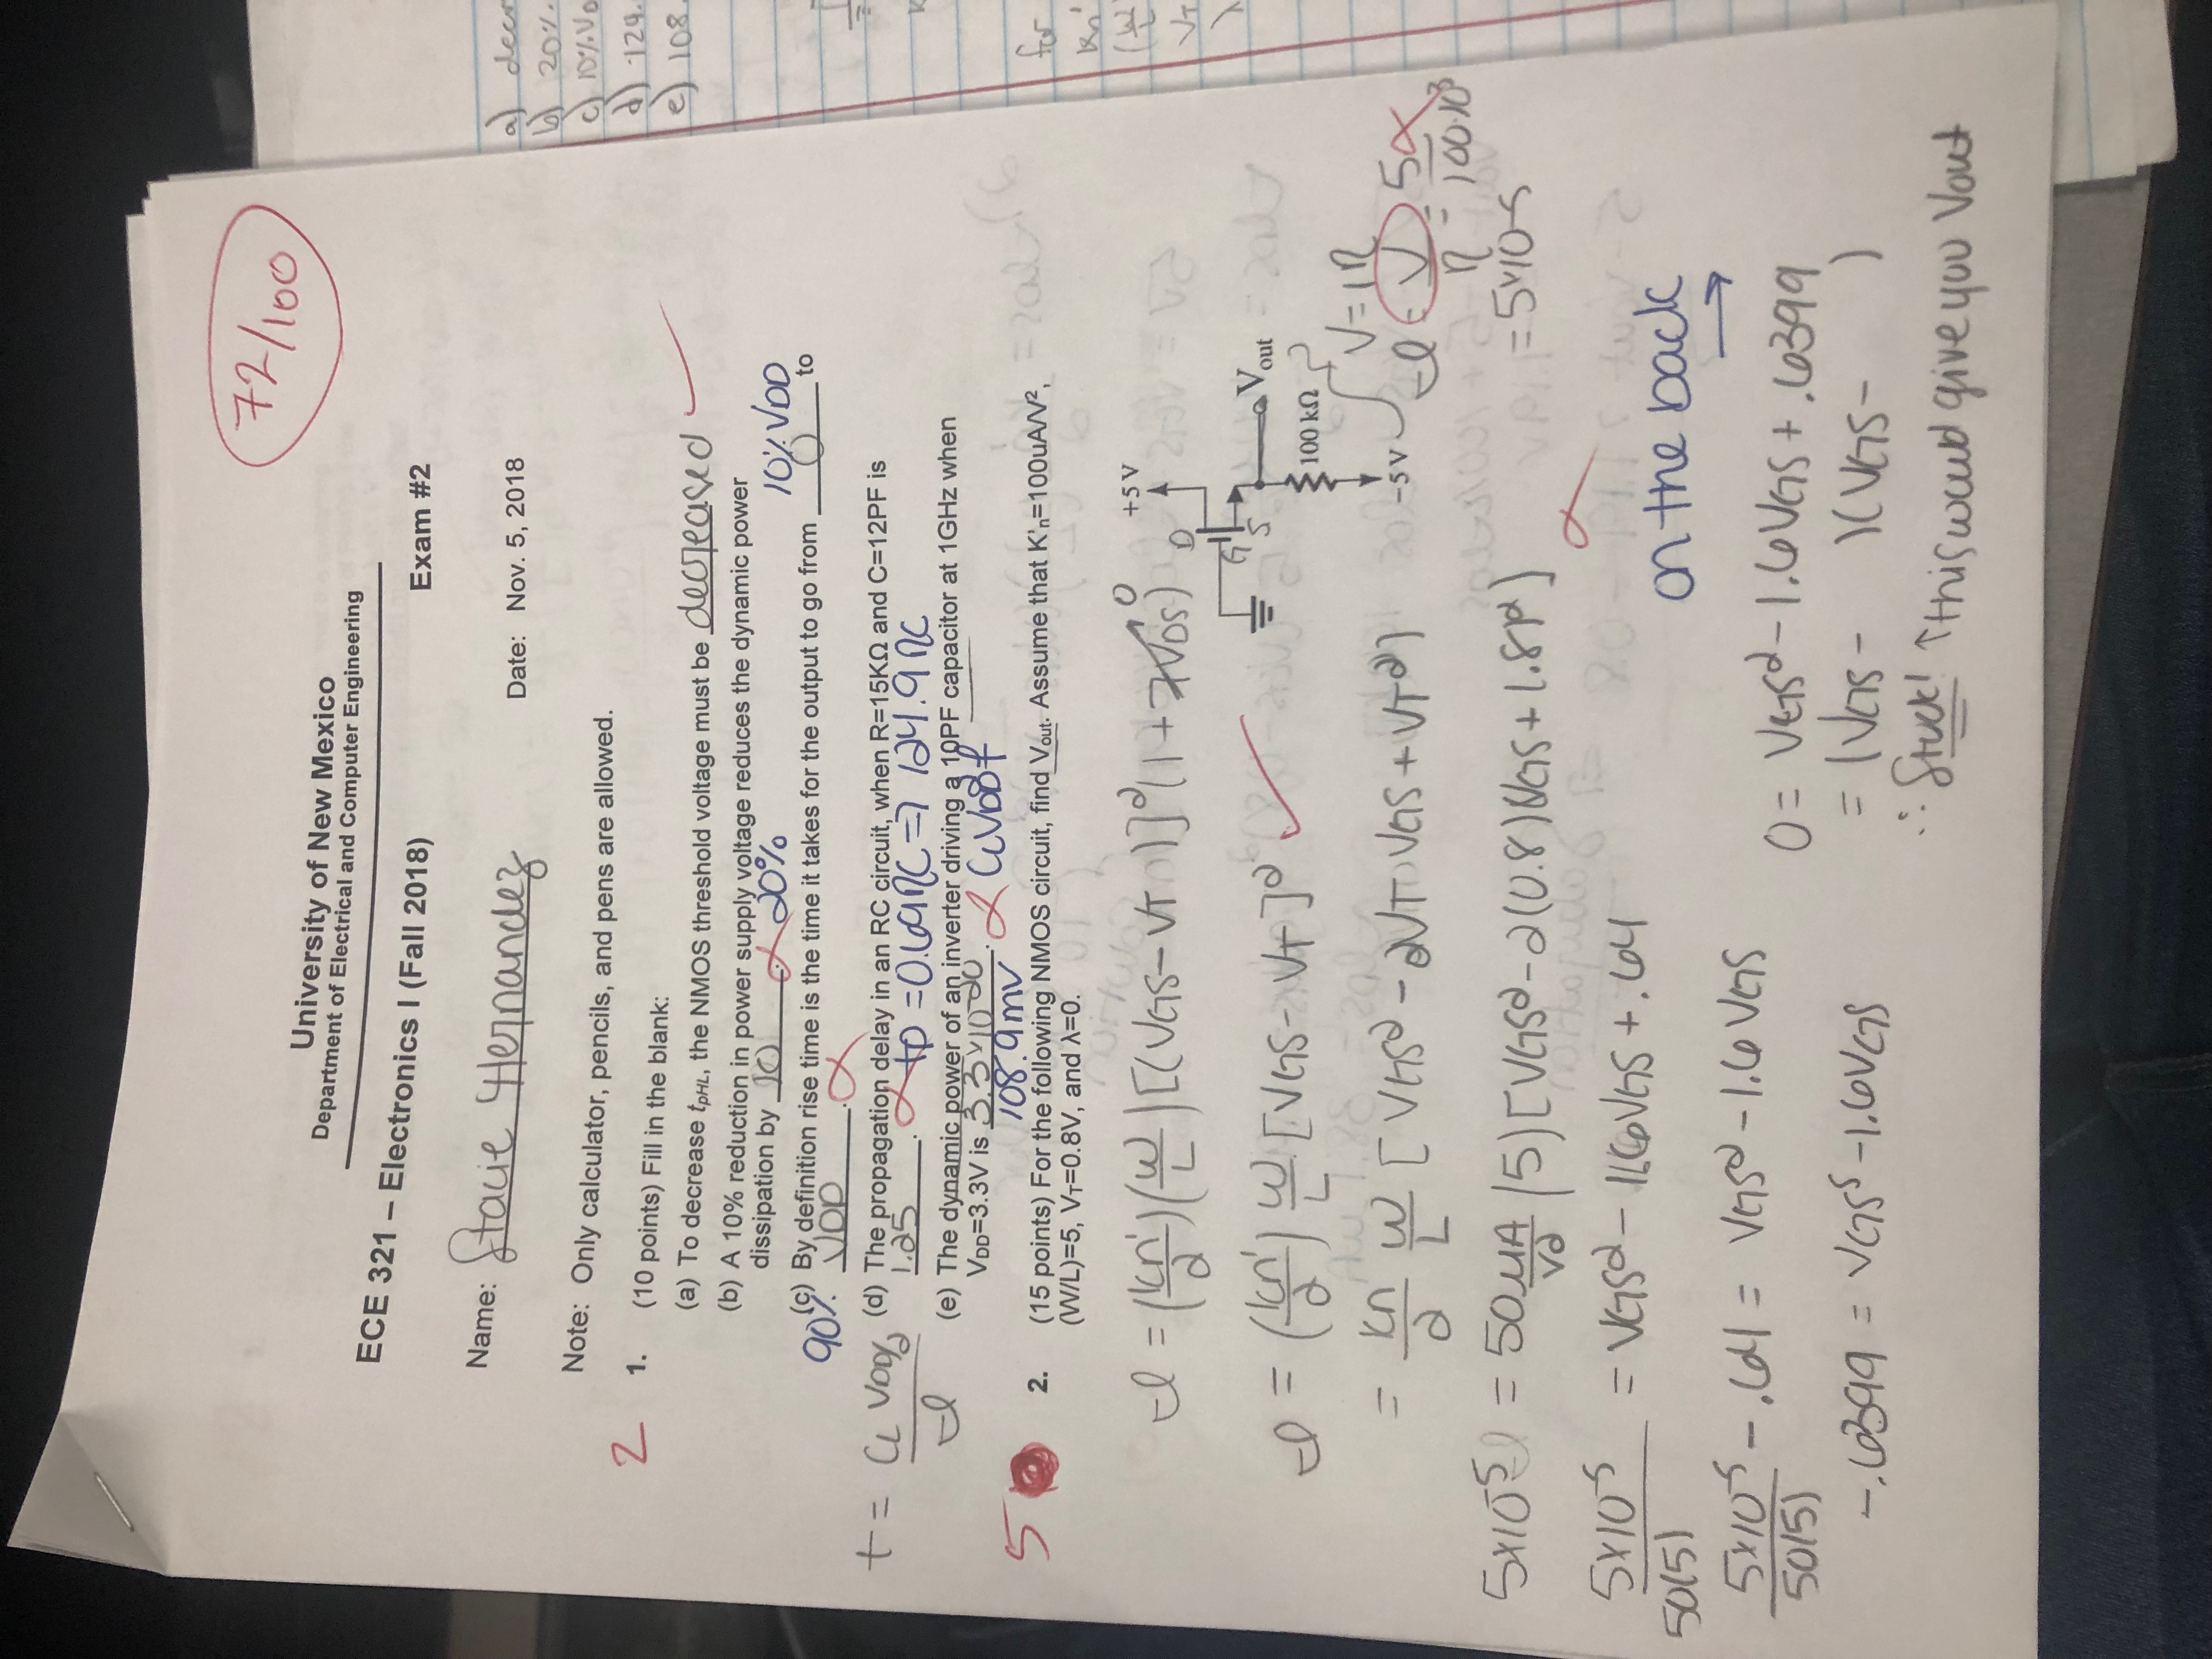 72/100
University of New Mexico
Department of Electrical and Computer Engineering
ECE 321 – Electronics I (Fall 2018)
Exam #2
Name: Stacie Hernandez
Date: Nov. 5, 2018
Note: Only calculator, pencils, and pens are allowed.
2
1. (10 points) Fill in the blank:
(a) To decrease tpHL, the NMOS threshold voltage must be decreased
(b) A 10% reduction in power supply voltage reduces the dynamic power
dissipation by 10. 20%
10% VDD
(c) By definition rise time is the time it takes for the output to go from 0 to
90% VDD.
t = CL VDD/2 / I
(d) The propagation delay in an RC circuit, when R=15KΩ and C=12PF is
1.25. tp = 0.69RC => 124.9 RC
(e) The dynamic power of an inverter driving a 10PF capacitor at 1GHz when
VDD=3.3V is 3.3x10-20. CLVDD²f
108.9mv
5
2. (15 points) For the following NMOS circuit, find Vout. Assume that K'n=100uA/V²,
(W/L)=5, VT=0.8V, and λ=0.
I = (kn'/2)(W/L)[(VGS-VT)]²(1+λVDS) 0
+5 V
D
G
S
Vout
100 kΩ
-5 V
I = (kn'/2) W/L [VGS - VT]²
V=IR
= kn/2 W/L [VGS² - 2VT VGS + VT²]
I = V/R = 5/100·10³
= 5x10-5
5x10-5 = 50 μA/V² (5)[VGS² - 2(0.8)VGS + (.8)²]
5x10-5/50(5) = VGS² - 1.6VGS + .64
on the back
→
5x10-5/50(5) - .64 = VGS² - 1.6 VGS
0 = VGS² - 1.6VGS + .6399
-.6399 = VGS² - 1.6VGS
= (VGS - )(VGS - )
∴ Stuck! ↑this would give you Vout
a)
b) 20%
c) 10%
d) 124.
e) 108.
for
kn'
VT
λ